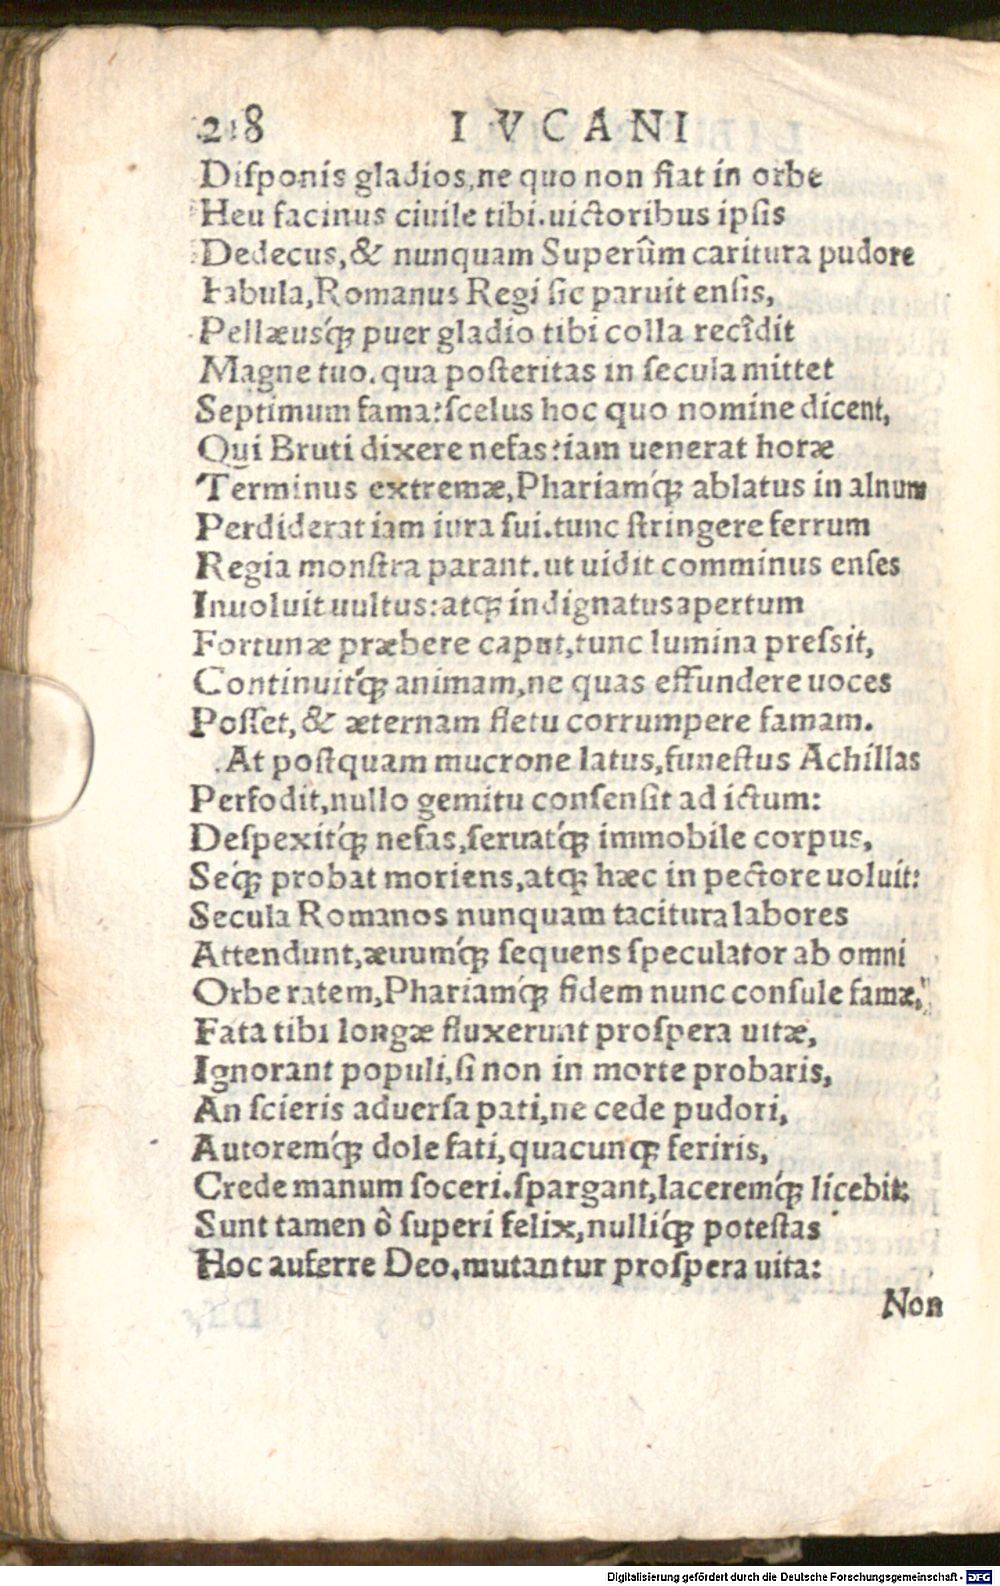 218 LVCANI
Diſponis gladios, ne quo non fiat in orbe
Heu facinus ciuile tibi. uictoribus ipſis
Dedecus, & nunquam Superûm caritura pudore
Fabula, Romanus Regi ſic paruit enſis,
Pellæusq́ꝫ puer gladio tibi colla recîdit
Magne tuo. qua poſteritas in ſecula mittet
Septimum fama? ſcelus hoc quo nomine dicent,
Qui Bruti dixere nefas? iam uenerat horæ
Terminus extremæ, Phariamq́ꝫ ablatus in alnum
Perdiderat iam iura ſui. tunc ſtringere ferrum
Regia monſtra parant. ut uidit comminus enſes
Inuoluit uultus: atqꝫ indignatus apertum
Fortunæ præbere caput, tunc lumina preſsit,
Continuitq́ꝫ animam, ne quas effundere uoces
Poſſet, & æternam fletu corrumpere famam.
At poſtquam mucrone latus, funeſtus Achillas
Perfodit, nullo gemitu conſenſit ad ictum:
Deſpexitq́ꝫ nefas, ſeruatq́ꝫ immobile corpus,
Seq́ꝫ probat moriens, atqꝫ hæc in pectore uoluit:
Secula Romanos nunquam tacitura labores
Attendunt, æuumq́ꝫ ſequens ſpeculator ab omni
Orbe ratem, Phariamq́ꝫ fidem nunc conſule famæ,
Fata tibi longæ fluxerunt proſpera uitæ,
Ignorant populi, ſi non in morte probaris,
An ſcieris aduerſa pati, ne cede pudori,
Autoremq́ꝫ dole fati, quacunqꝫ feriris,
Crede manum ſoceri. ſpargant, laceremq́ꝫ licebit:
Sunt tamen ô ſuperi felix, nulliq́ꝫ poteſtas
Hoc auferre Deo, mutantur proſpera uita:
Non
Digitalisierung gefördert durch die Deutsche Forschungsgemeinschaft - DFG